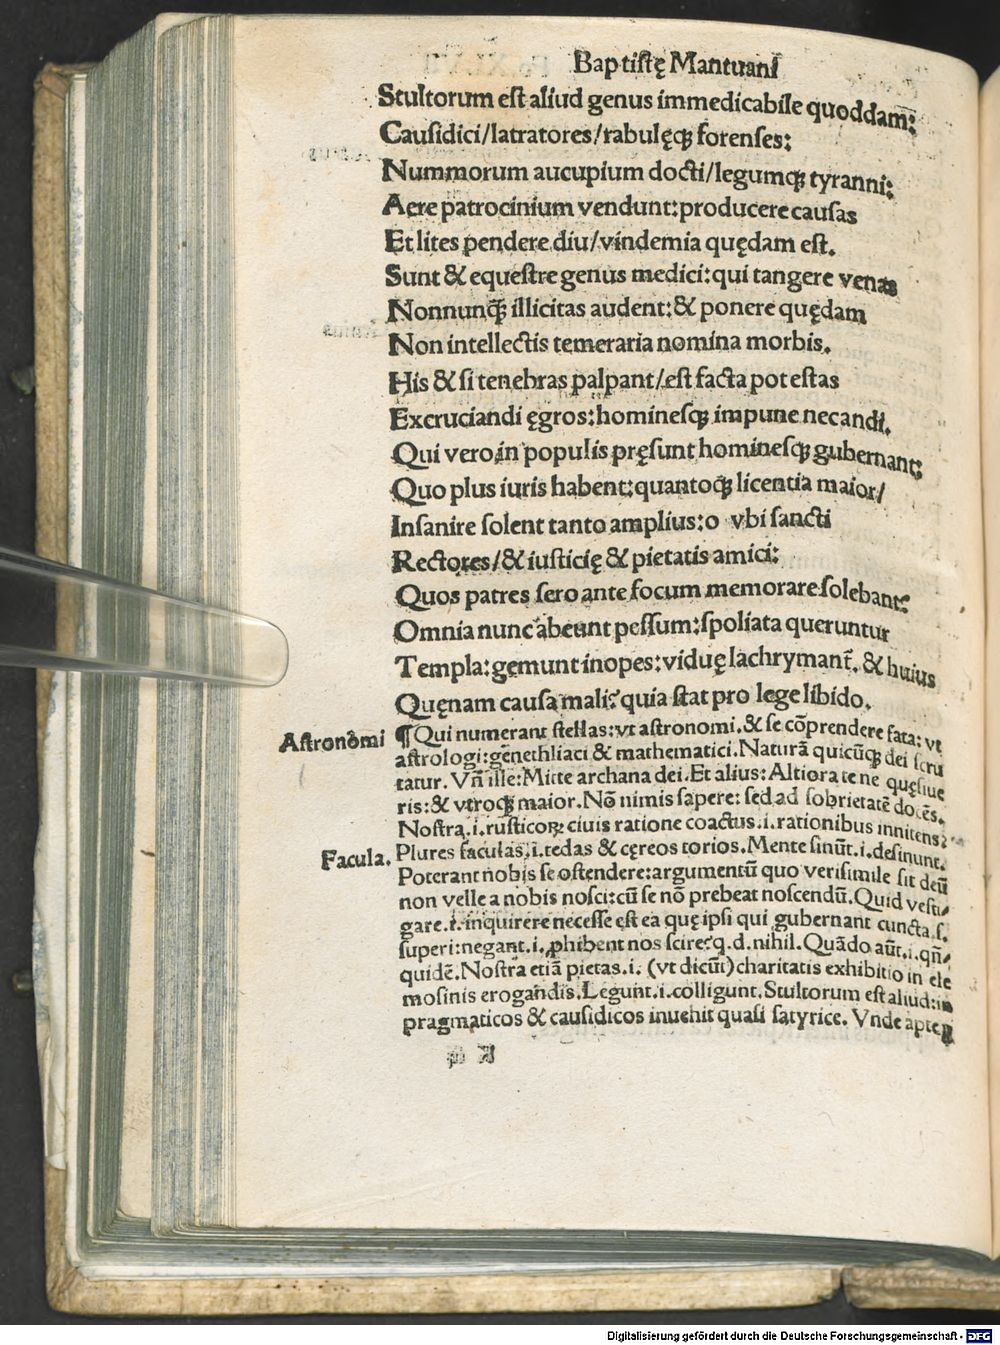 Baptistę Mantuani
Stultorum est aliud genus immedicabile quoddam:
Causidici/latratores/rabulęqꝫ forenses:
Nummorum aucupium docti/legumqꝫ tyranni:
Aere patrocinium vendunt:producere causas
Et lites pendere diu/vindemia quędam est.
Sunt & equestre genus medici:qui tangere venas
Nonnunqꝫ illicitas audent:& ponere quędam
Non intellectis temeraria nomina morbis.
His & si tenebras palpant/est facta potestas
Excruciandi ęgros:hominesqꝫ impune necandi.
Qui vero in populis pręsunt hominesqꝫ gubernant:
Quo plus iuris habent:quantoqꝫ licentia maior/
Insanire solent tanto amplius:o vbi sancti
Rectores/& iusticię & pietatis amici:
Quos patres sero ante focum memorare solebant?
Omnia nunc abeunt pessum:spoliata queruntur
Templa:gemunt inopes:viduę lachrymant̃. & huius
Quęnam causa mali? quia stat pro lege libido.
Astronomi ¶ Qui numerant stellas:vt astronomi.& se cõprendere fata: vt
astrologi:genethliaci & mathematici. Naturã quicũqꝫ dei scru
tatur. Vñ ille: Mitte archana dei. Et alius: Altiora te ne quęsiue
ris:& vtroqꝫ maior. Nõ nimis sapere: sed ad sobrietatẽ docẽs.
Nostrą.i.rusticoꝝ ciuis ratione coactus.i.rationibus innitens:
Facula. Plures faculas.i.tedas & cęreos torios. Mente sinũt.i.desinunt.
Poterant nobis se ostendere:argumentũ quo verisimile sit deũ
non velle a nobis nosci:cũ se nõ prebeat noscendũ. Quid vesti/
gare.i.inquirere necesse est ea quę ipsi qui gubernant cuncta.s.
superi:negant.i.ꝓhibent nos scire?q.d.nihil. Quãdo aũt.i.qñ/
quidẽ. Nostra etiã pietas.i. (vt dicũt) charitatis exhibitio in ele
mosinis erogandis. Legunt.i.colligunt. Stultorum est aliud:in
pragmaticos & causidicos inuehit quasi satyrice. Vnde apte
Digitalisierung gefördert durch die Deutsche Forschungsgemeinschaft - DFG